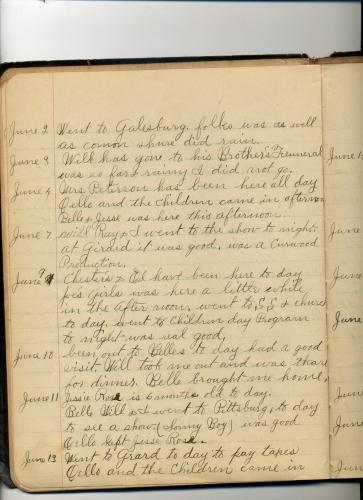 June 2 Went to Galesburg. folks was as well
as comon shure did rain.
June 3 Will has gone to his Brothers Feuneral
was so far & rainy I did not go.
June 4 Mrs Peterson has been here all day
Celle and the Children came in afternoon
Belle & Jesse was here this afternoon.
June 7 Will Ray & I went to the show to night
at Girard it was good, was a Curwood
Production.
June 9 Chesties & Ed have been here to day
Joes Girls was here a little while
in the after noon. went to S.S & church
to day. went to Children day Program
to night was real good,
June 10 been out to Belles to day had a good
visit. Will took me out and was thare
for dinner. Belle brought me home,
June 11 Jessie Rose is 6 months old to day.
Belle Will & I went to Pittsburg, to day
to see a show (Sonny Boy) was good
Celle kept Jesse Rose.
June 13 Went to Grard to day to pay taxes
Celle and the Children came in
June 1
June
June
June
June
June